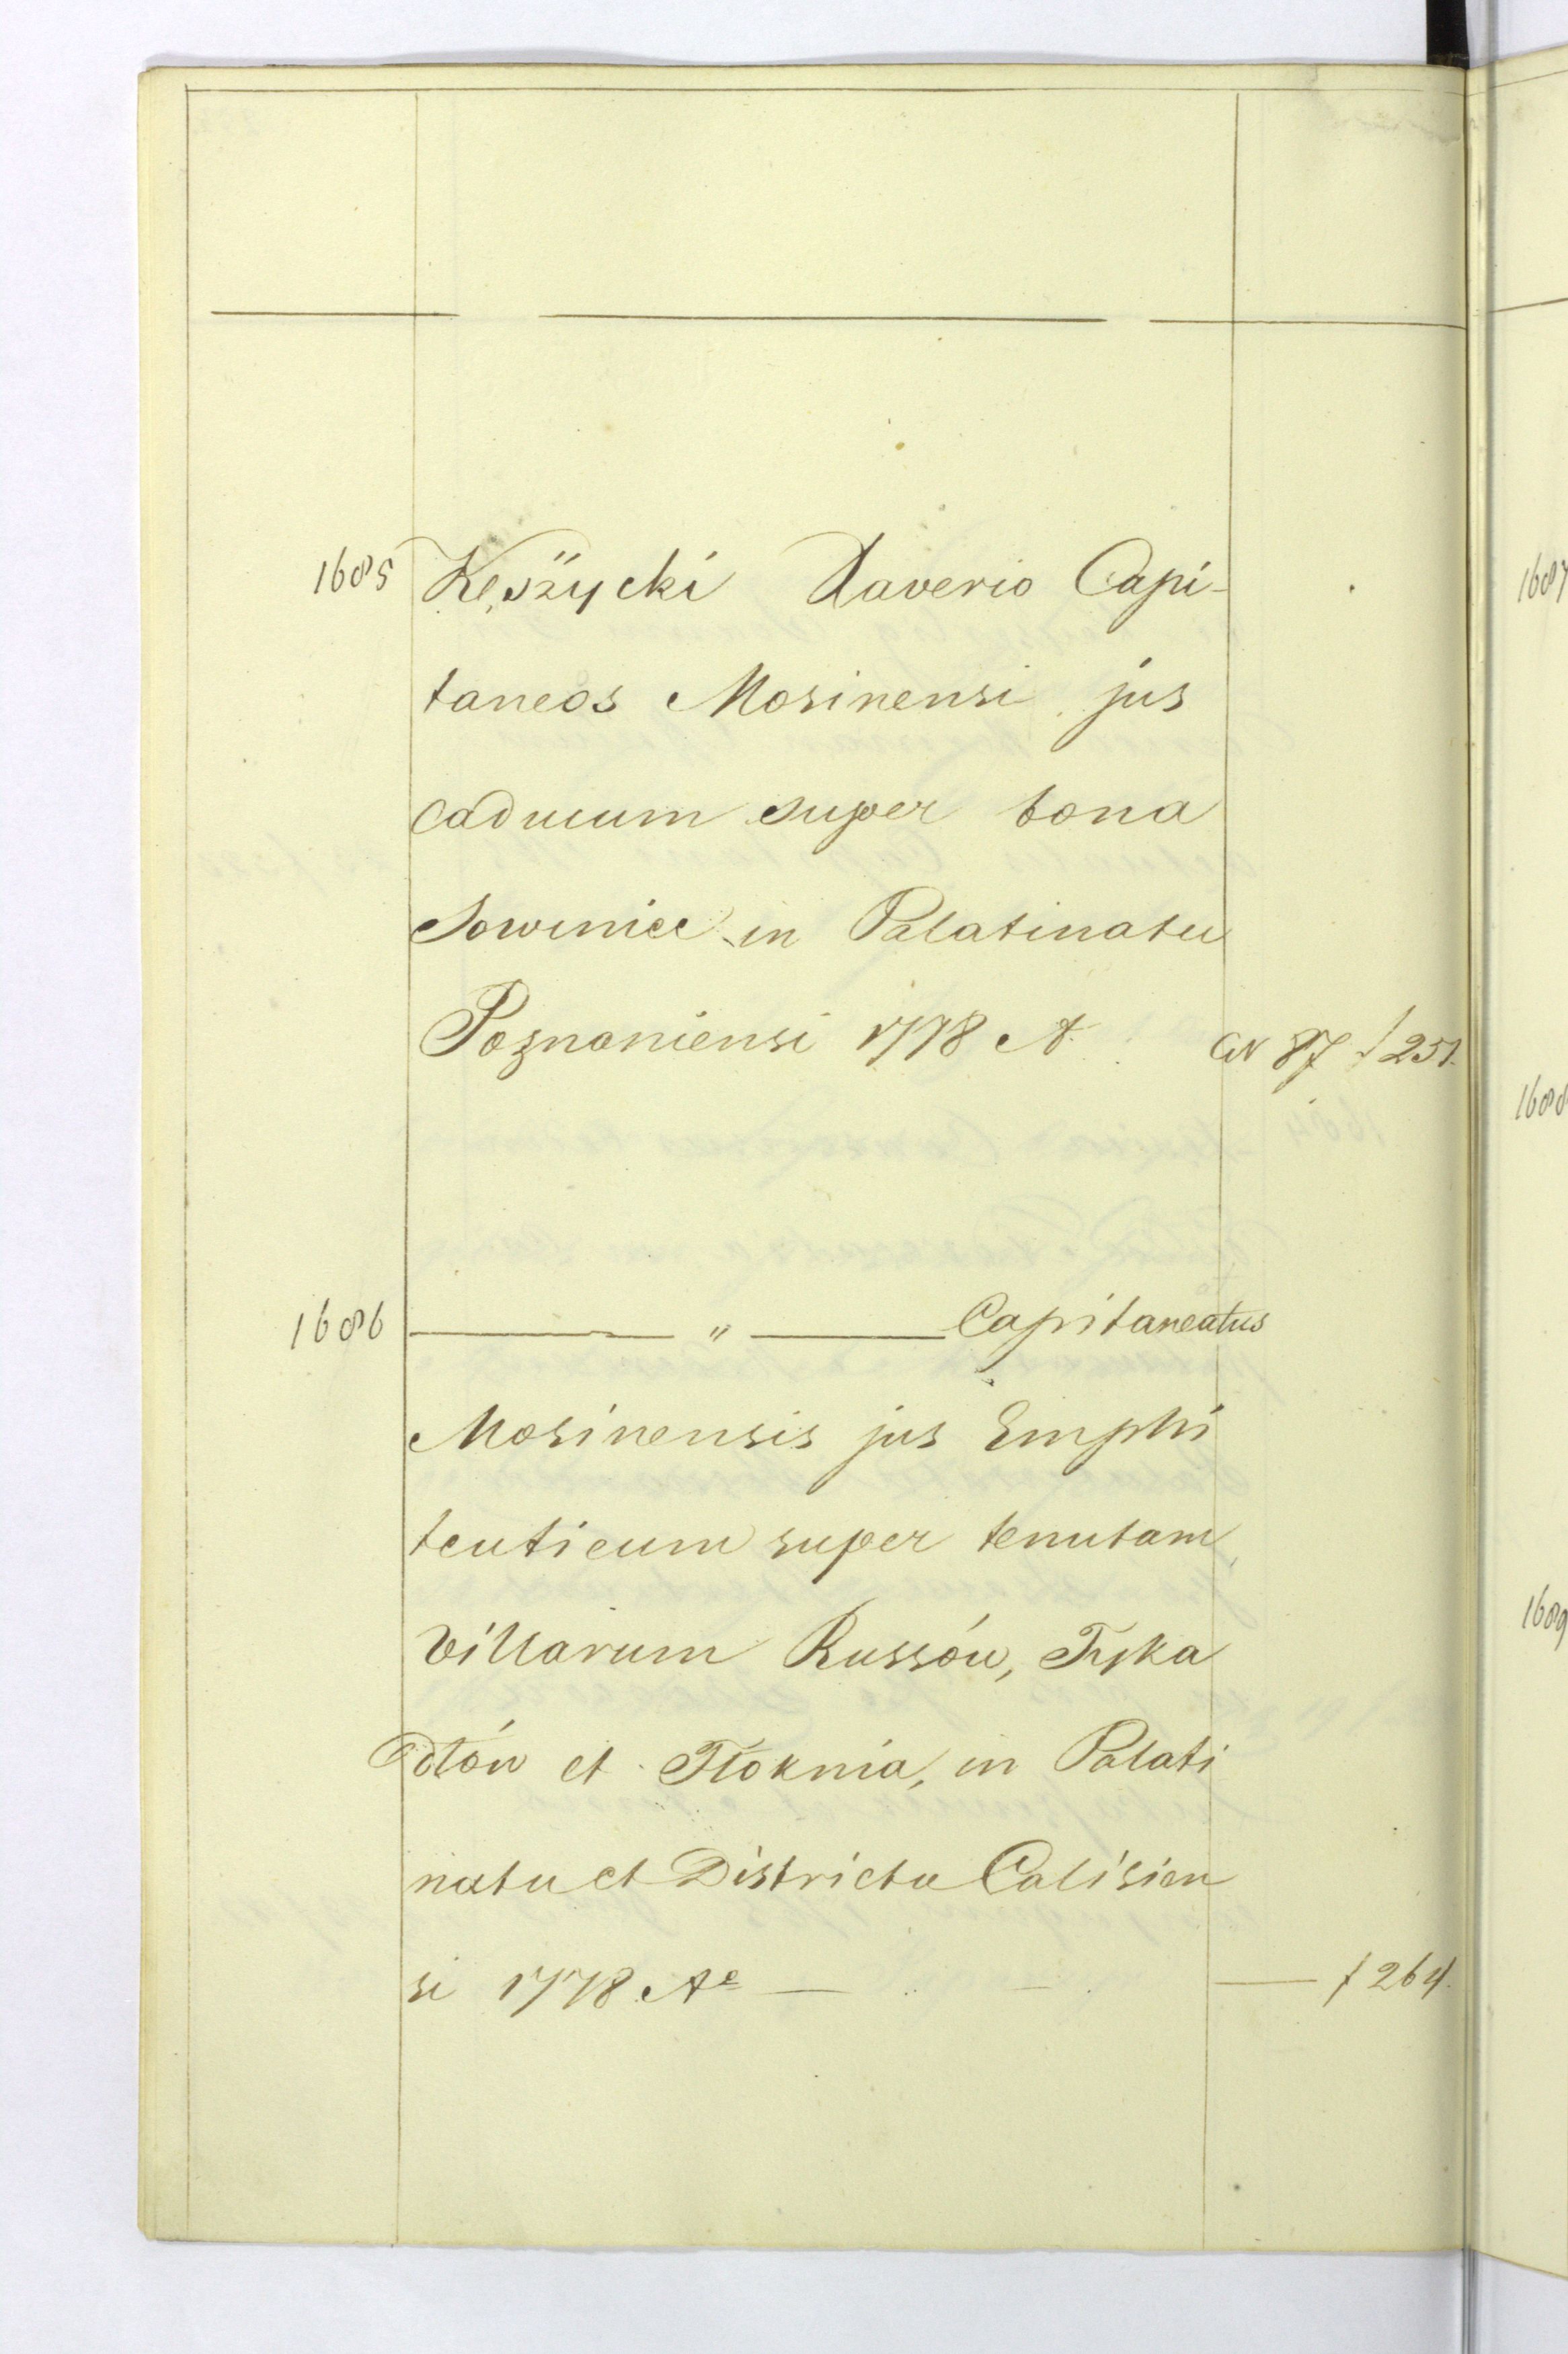 1685 Kęszycki Xaverio Capi-
taneos Mosinensi jus
caducum super bona
Sowiniec in Palatinatu
Poznaniensi 1778 A. CN 87 f 251.
1686 — " — Capitaneatus
Mosinensis jus Emphi
teuticum super tenutam
villarum Russów, Tyka
dłów et Tłoknia, in Palati
natu et Districtu Calisien
si 1778 Ae — — f 264.
1687
1688
1689